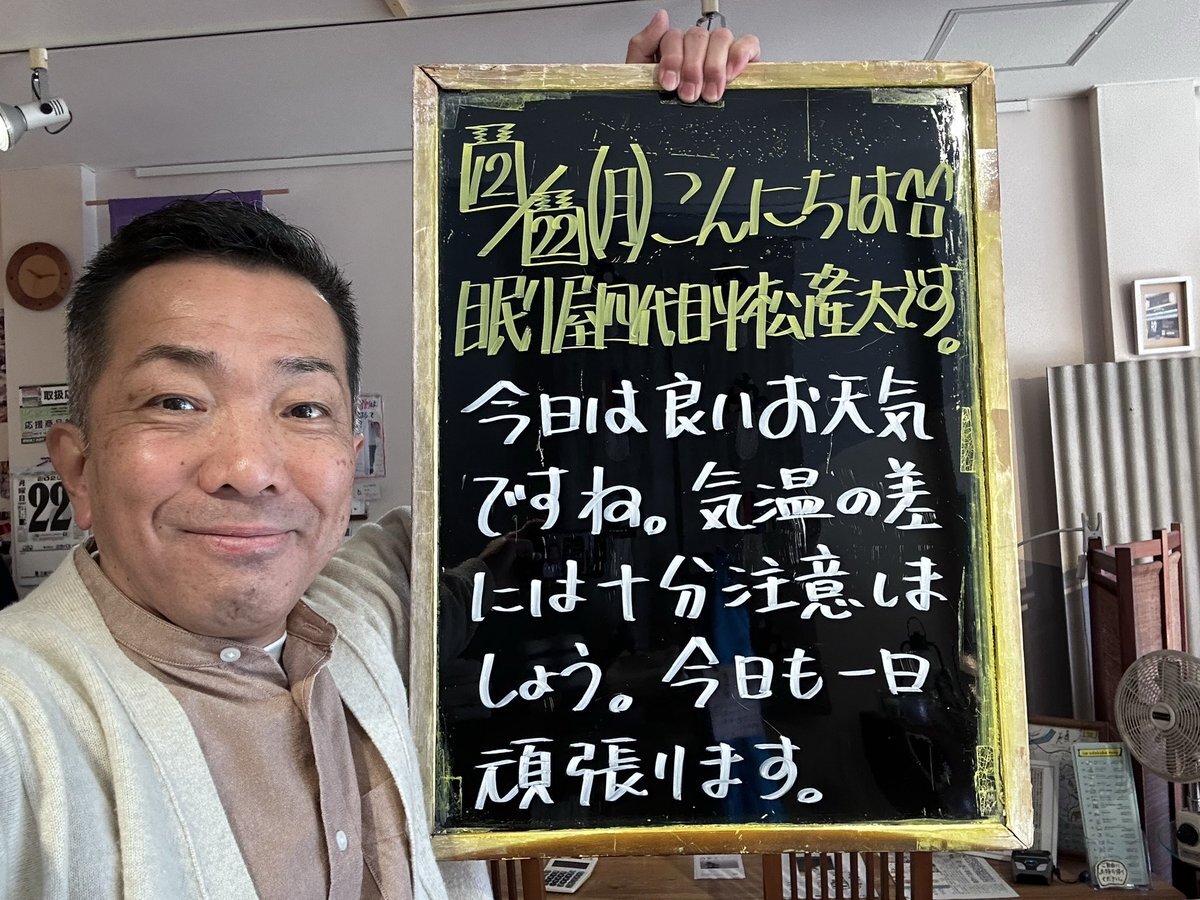 12/22(月)こんにちは^^
眠り屋四代目平松隆太です。
今日は良いお天気
ですね。気温の差
には十分注意しま
しょう。今日も一日
頑張ります。
取扱店
応援商品券
月曜日
22